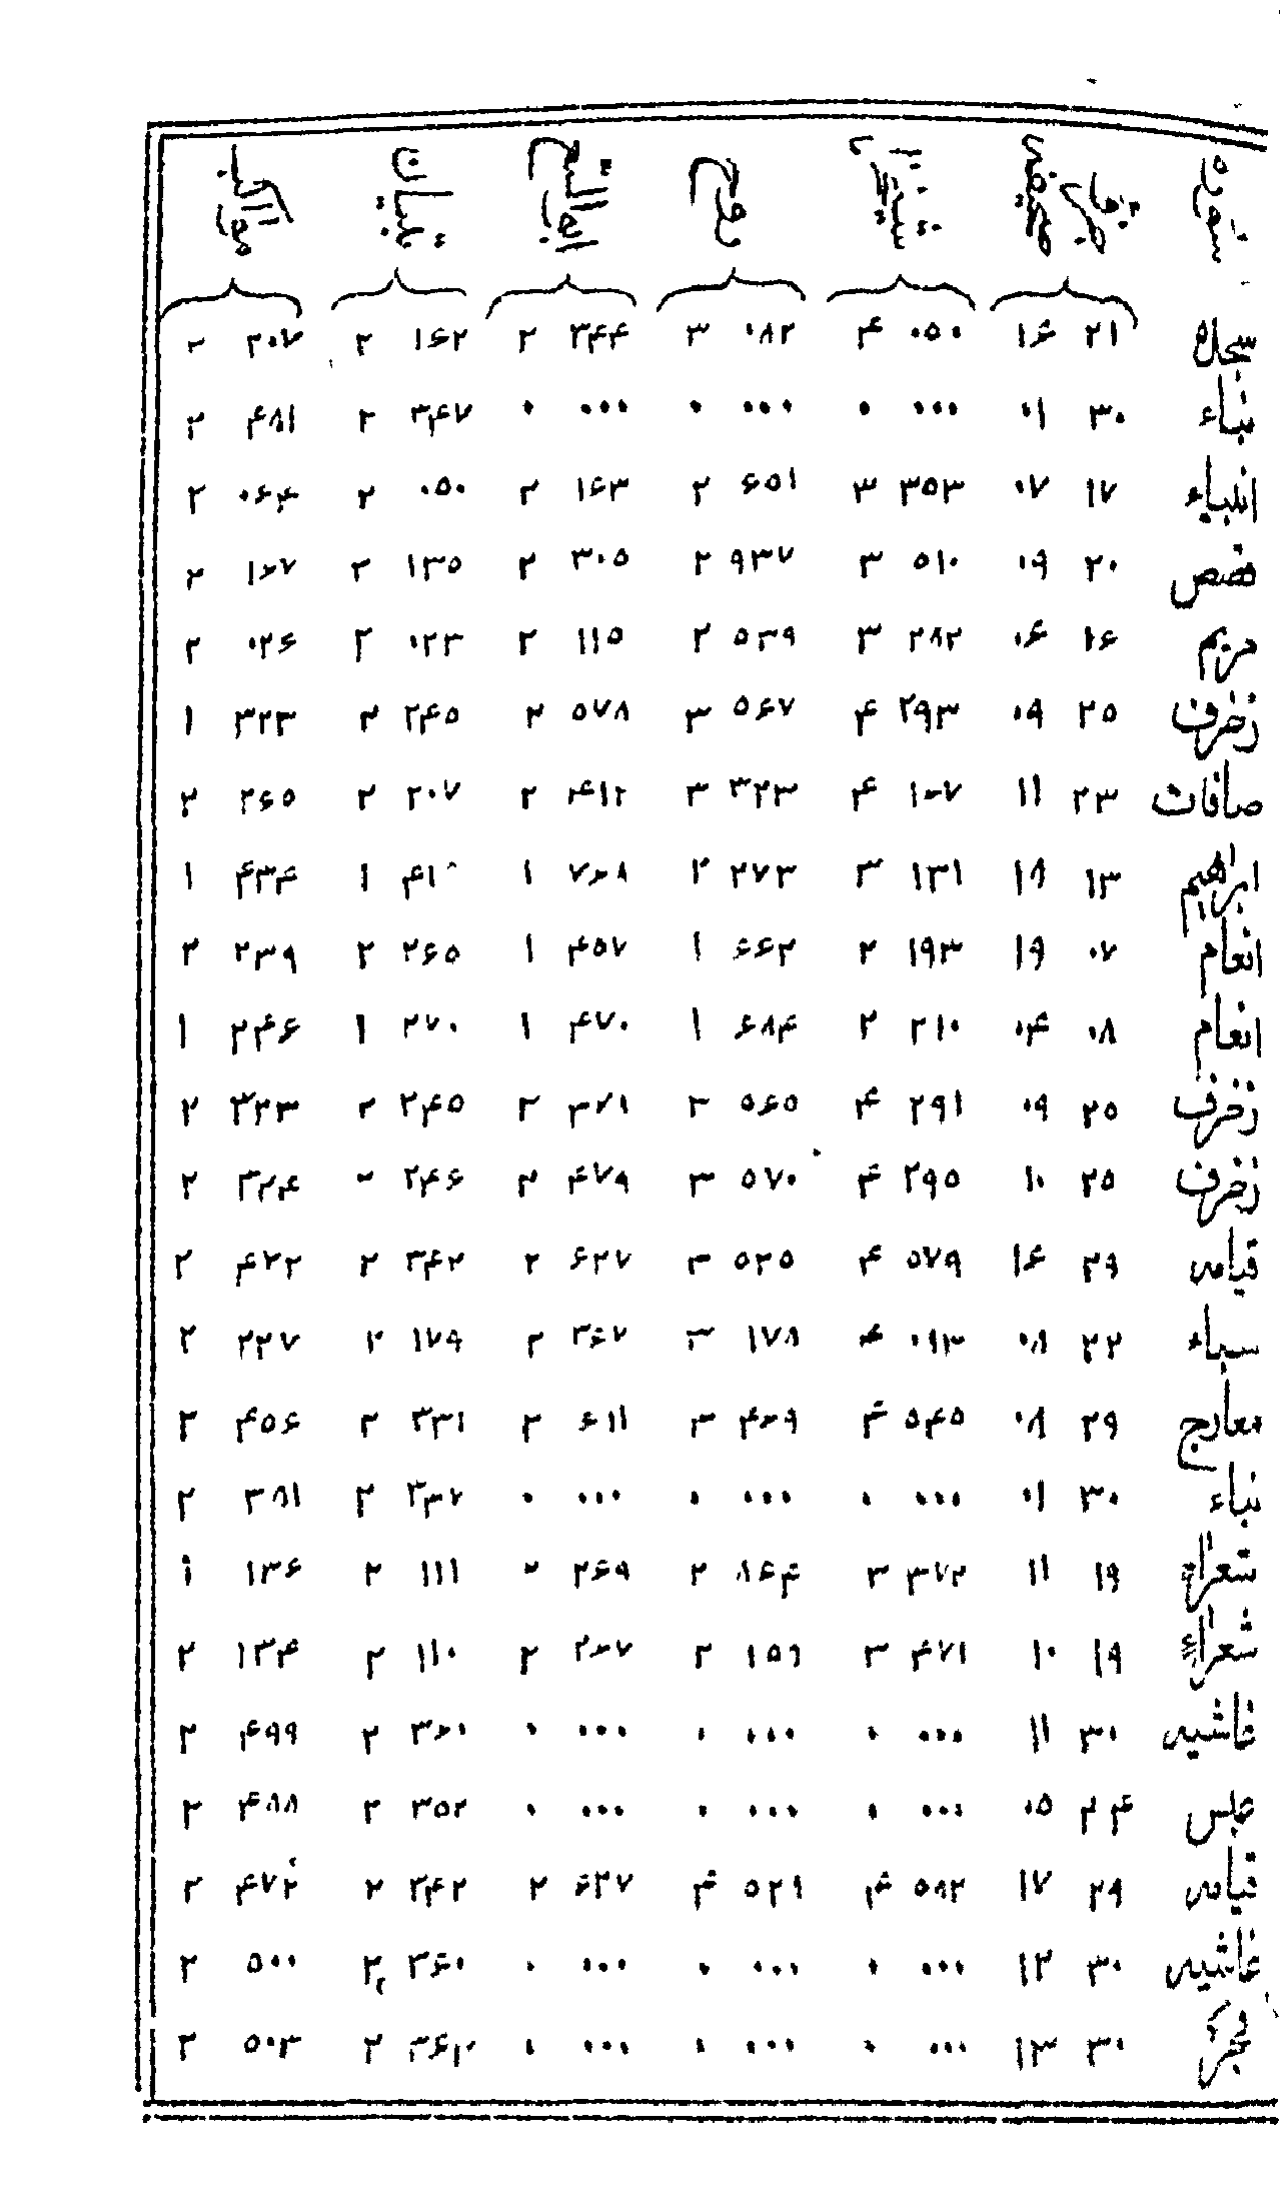 سوره جزؤ صحيفه شيخزاده روح ابو الليث تبيان مواكب
سجده ۲۱ ۱۶ ۰۵۰ ۴ ۰۸۲ ۳ ۳۴۴ ۲ ۱۶۲ ۲ ۳۰۷ ۲
نباء ۳۰ ۰۱ ۰۰۰ ۰ ۰۰۰ ۰ ۰۰۰ ۰ ۳۴۷ ۲ ۴۸۱ ۲
انبياء ۱۷ ۰۷ ۳۵۳ ۳ ۶۵۱ ۲ ۱۶۳ ۲ ۰۵۰ ۲ ۰۶۴ ۲
قصص ۲۰ ۰۹ ۵۱۰ ۳ ۹۳۷ ۲ ۳۰۵ ۲ ۱۳۵ ۲ ۱۶۷ ۲
مريم ۱۶ ۰۶ ۲۸۲ ۳ ۵۳۹ ۲ ۱۱۵ ۲ ۰۲۳ ۲ ۰۲۶ ۲
زخرف ۲۵ ۰۹ ۲۹۳ ۴ ۵۶۷ ۳ ۵۷۸ ۲ ۲۴۵ ۲ ۳۲۳ ۱
صافات ۲۳ ۱۱ ۱۰۷ ۴ ۳۲۳ ۳ ۴۱۲ ۲ ۲۰۷ ۲ ۲۶۵ ۲
ابراهيم ۱۳ ۱۹ ۱۳۱ ۳ ۲۷۳ ۲ ۷۶۸ ۱ ۱ ۴۳۴ ۱
انعام ۰۷ ۱۹ ۱۹۳ ۲ ۶۶۲ ۱ ۴۵۷ ۱ ۲۶۵ ۲ ۲۳۹ ۲
انعام ۰۸ ۰۴ ۲۱۰ ۲ ۶۸۴ ۱ ۴۷۰ ۱ ۲۷۰ ۱ ۲۴۶ ۱
زخرف ۲۵ ۰۹ ۲۹۱ ۴ ۵۶۵ ۳ ۲ ۲۴۵ ۲ ۳۲۳ ۲
زخرف ۲۵ ۱۰ ۲۹۵ ۴ ۵۷۰ ۳ ۴۷۹ ۲ ۲۴۶ ۲ ۳۲۴ ۲
قيامه ۲۹ ۱۶ ۵۷۹ ۴ ۵۲۵ ۳ ۶۲۷ ۲ ۳۴۲ ۲ ۴۷۲ ۲
سباء ۲۲ ۰۸ ۰۹۳ ۴ ۱۷۸ ۳ ۳۶۷ ۲ ۱۷۹ ۲ ۲۲۷ ۲
معارج ۲۹ ۰۸ ۵۴۵ ۴ ۴۶۹ ۳ ۶۱۱ ۲ ۳۳۱ ۲ ۴۵۶ ۲
نباء ۳۰ ۰۱ ۰۰۰ ۰ ۰۰۰ ۰ ۰۰۰ ۰ ۳۴۷ ۲ ۳۸۱ ۲
شعراء ۱۹ ۱۱ ۳۷۲ ۳ ۸۶۴ ۲ ۲۶۹ ۲ ۱۱۱ ۲ ۱۳۶ ۱
شعراء ۱۹ ۱۰ ۴۷۱ ۳ ۱۵۹ ۲ ۲۶۷ ۲ ۱۱۰ ۲ ۱۳۴ ۲
غاشيه ۳۰ ۱۱ ۰۰۰ ۰ ۰۰۰ ۰ ۰۰۰ ۰ ۳۶۰ ۲ ۴۹۹ ۲
عبس ۲۴ ۰۵ ۰۰۰ ۰ ۰۰۰ ۰ ۰۰۰ ۰ ۳۵۲ ۲ ۴۸۸ ۲
قيامه ۲۹ ۱۷ ۵۸۲ ۴ ۵۲۹ ۴ ۶۲۷ ۲ ۳۴۲ ۲ ۴۷۲ ۲
غاشيه ۳۰ ۱۲ ۰۰۰ ۰ ۰۰۰ ۰ ۰۰۰ ۰ ۳۶۰ ۲ ۵۰۰ ۲
فجر ۳۰ ۱۳ ۰۰۰ ۰ ۰۰۰ ۰ ۰۰۰ ۰ ۳۶۲ ۲ ۵۰۳ ۲